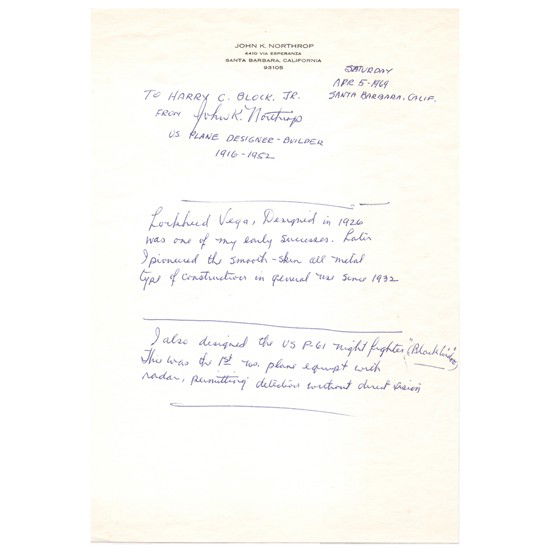 JOHN K. NORTHROP
6410 VIA ESPERANZA
SANTA BARBARA, CALIFORNIA
93105
SATURDAY
APR 5-1969
SANTA BARBARA, CALIF.
TO HARRY C. BLOCK, JR.
FROM John K. Northrop
US PLANE DESIGNER-BUILDER
1916-1952
Lockheed Vega, Designed in 1926
was one of my early successes. Later
I pionered the smooth-skin all metal
type of construction in general use since 1932
I also designed the US P-61 night fighter "(Black Widow)
This was the 1st plane equipt with
radar, permitting detection without direct vision